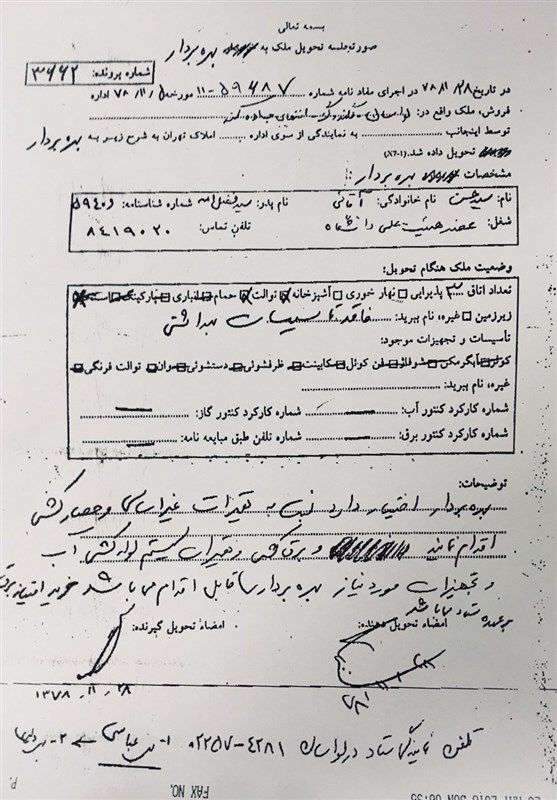 بسمه تعالی
صورتجلسه تحویل ملک به بهره بردار
شماره پرونده: ۳۶۶۲
در تاریخ ۷۸/۱۱/۲۸ در اجرای مفاد نامه شماره ۵۹۶۸۷-۱۱ مورخه ۷۸/۱۱/۵ اداره
فروش، ملک واقع در:
توسط اینجانب به نمایندگی از سوی اداره املاک تهران به شرح زیر به بهره بردار
تحویل داده شد.(X7-1)
مشخصات بهره بردار:
نام: سید حسن نام خانوادگی: آقائی نام پدر: سید فضل اله شماره شناسنامه: ۵۹۴۰۶
شغل: عضو هیئت علمی دانشگاه تلفن تماس: ۸۴۱۹۰۲۰
وضعیت ملک هنگام تحویل:
تعداد اتاق ۳ پذیرایی نهار خوری آشپزخانه توالت حمام انباری پارکینگ
زیرزمین غیره، نام ببرید: فاقد تاسیسات بهداشتی
تأسیسات و تجهیزات موجود:
کولر آبگرمکن شوفاژ فن کوئل کابینت ظرفشوئی دستشوئی وان توالت فرنگی
غیره، نام ببرید:
شماره کارکرد کنتور آب: شماره کارکرد کنتور گاز:
شماره کارکرد کنتور برق: شماره تلفن طبق مبایعه نامه:
توضیحات:
بهره بردار اختیار دارد نسبت به تعمیرات غیر اساسی و حصار کشی
اقدام نماید و برق کشی و تعمیرات سیستم لوله کشی آب
و تجهیزات مورد نیاز بهره بردار قابل اقدام میباشد خرید امتیاز برق
بر عهده ستاد میباشد
امضاء تحویل دهنده: امضاء تحویل گیرنده:
۱۳۷۸،۱۱،۲۸
تلفن نمایندگی ستاد در لواسان ۴۲۸۱-۰۲۲۵۷ ۱- عباسی ۲-
P. FAX NO.